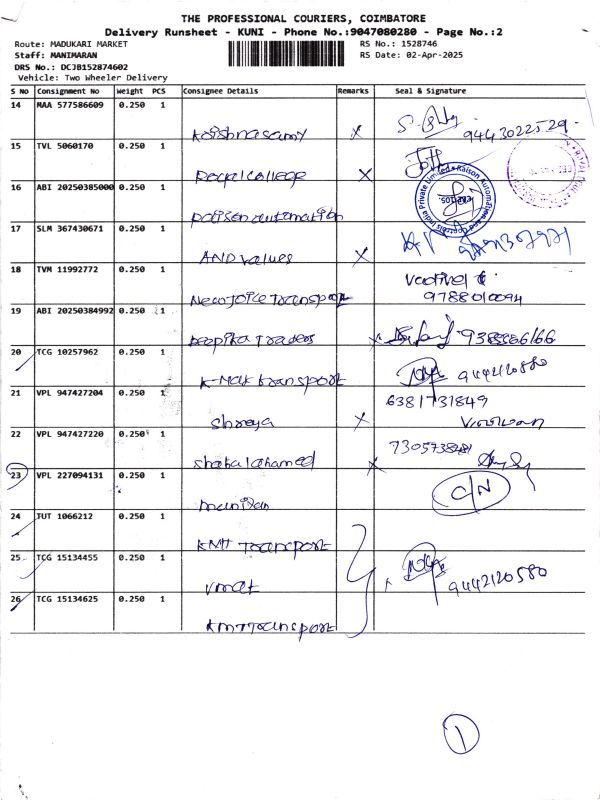 THE PROFESSIONAL COURIERS, COIMBATORE
Delivery Runsheet - KUNI - Phone No.:9047080280 - Page No.:2
Route: MADUKARI MARKET RS No.: 1528746
Staff: MANIMARAN RS Date: 02-Apr-2025
DRS No.: DCJB152874602
Vehicle: Two Wheeler Delivery
S No Consignment No Weight PCS Consignee Details Remarks Seal & Signature
14 MAA 577586609 0.250 1
Krishnasamy x 9443022529
15 TVL 5060170 0.250 1
Royal College x
16 ABI 20250385000 0.250 1
17 SLM 367430671 0.250 1
AND values x
18 TVM 11992772 0.250 1
Vadivel
New Joice Transport 9788010094
19 ABI 20250384992 0.250 1
Deepika Traders x
20 TCG 10257962 0.250 1
K-Mat transport 9442120580
21 VPL 947427204 0.250 1 6381731849
Shreya x
22 VPL 947427220 0.250 1 7305738481
Shahul ahamed x
23 VPL 227094131 0.250 1 C/N
24 TUT 1066212 0.250 1
KMT Transport
25 TCG 15134455 0.250 1
x 9442120580
26 TCG 15134625 0.250 1
KMT Transport
1